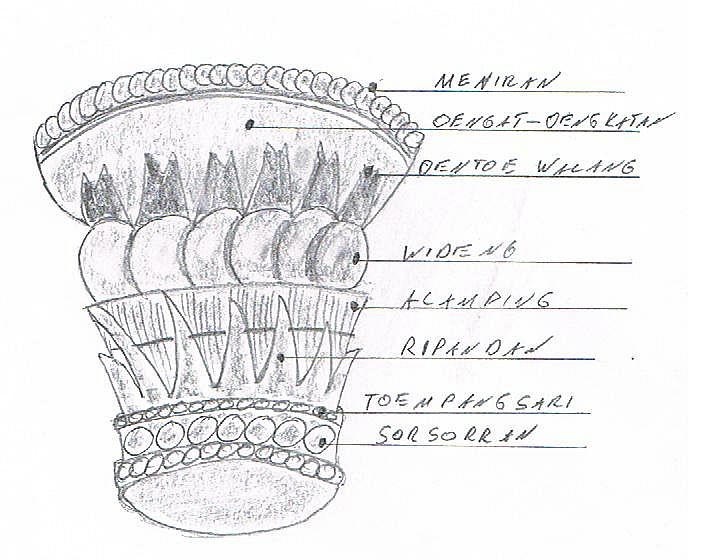 MENIRAN
OENGAT-OENGKATAN
OENTOE WALANG
WIDENG
ALAMPING
RIPANDAN
TOEMPANGSARI
SORSORRAN